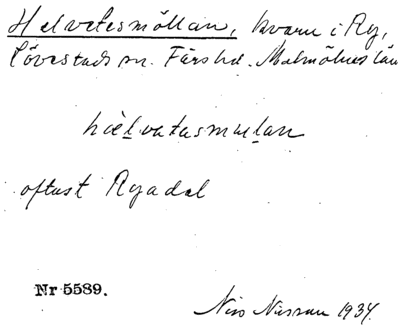 Helvetesmöllan, kvarn i Ry,
Lövestads sn. Färs hd. Malmöhus län
hèlvatasmulan
oftast Ryadal
Nr 5589.
Nils Nilsson 1934.